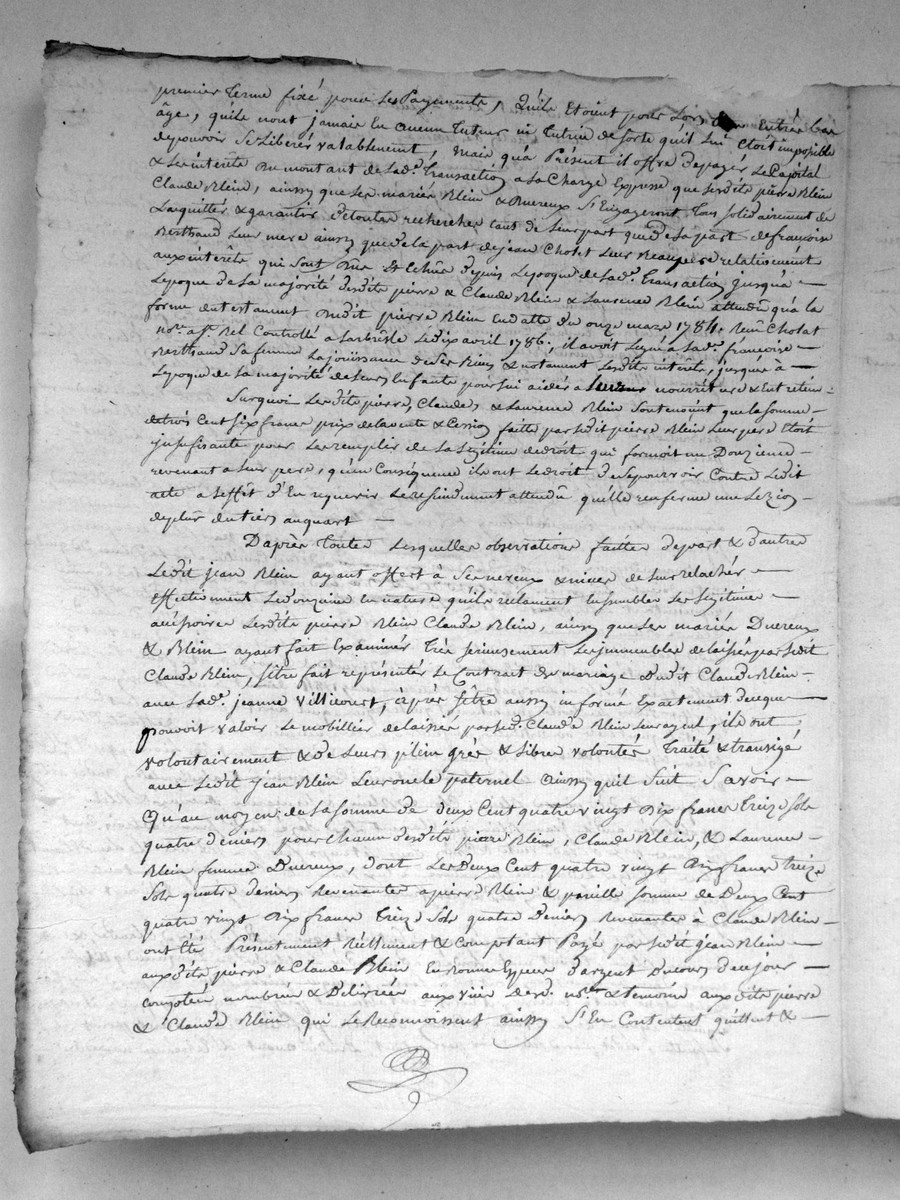 premier terme fixé pour les Payements, Quils Etoient pour Lors En très bas
âge, quils nont jamais Eu aucun tuteur ni tutrice de sorte quil Lui Etoit impossible
de pouvoir se Liberér valablement, Mais qua Present il offre de payér Le Capital
& les interets Du montant de Lad.e transaction a la Charge Expresse que lesdits pierre Blein
Claude Blein, ainssy que les mariés Blein & Duereux s'Engageront tous solidairement de
Lacquitter & garantir de toutes recherches tant de leur part que de la part de françoise
Berthaud Leur mere ainsy que de la part de jean Cholet Leur Beaupere relativement
aux interêts qui sont Dus Et Echus depuis Lepoque de Lad.e transaction jusqua —
Lepoque de la majorité desdits pierre & Claude Blein & Laurence Blein attendu qua la
forme du testament Dudit pierre Blein En datte du onze mars 1784. Reçu Cholat
no.re a st. Bel Controllé a Larbrêsle Le dix avril 1786, il avoit Legué a Lad.e françoise —
Berthaud Sa femme La joüissance de ses Biens & notament Lesdits interêts, jusques à —
Lepoque de la majorité de leurs Enfants pour lui aider a leurs nourriture & Entretien
Surquoi Lesdits pierre, Claude & Laurence Blein Soutenoient que la somme —
de trois Cent six francs prix de la vente & Cession faitte par ledit pierre Blein Leur pere Etoit
insufisante pour les remplir de La Legitime de droit qui formoit un Douzieme —
revenant a leur pere, qu'en Conséquence ils ont Le droit de se pourvoir Contre Ledit
acte a Leffêt d'En requerir Le rescindement attendu quelle renferme une Lezion
de plus du tiers au quart —
D'après toutes Lesquelles observations faittes de part & d'autre
Ledit jean Blein ayant offert à Ses neveux & niece de leur relachér —
Effectivement Le douzieme en nature quils reclament Ensemble les Legitimes —
aussi Lesdits pierre Blein Claude Blein, ainsy que les mariés Duereux
& Blein ayant fait Examinér très serieusement Les jmmeubles delaissés par ledit
Claude Blein, s'être fait représenté Le Contrat de mariage Dudit Claude Blein —
avec Lad.e jeanne Villicourt, & après s'être aussi informé Exactement de ce que —
pouvoit valoir Le mobillier delaissé par led. Claude Blein leur ayeul, ils ont
volontairement & de Leurs plein gréz & Libres volontéz traité & transigé
avec Ledit jean Blein Leur oncle paternel Ainssy quil Suit Savoir —
Qu'au moyen de La somme de deux Cent quatre vingt Dix francs treize sols
quatre deniers pour Chacun desdits pierre Blein, Claude Blein, & Laurence —
Blein femme Duereux, dont Les Deux Cent quatre vingt Dix francs treize
Sols quatre deniers Revenantes a pierre Blein & pareille somme de Deux Cent
quatre vingt Dix francs treize Sols quatre Deniers Revenantes à Claude Blein —
ont Eté Présentement Réellement & Comptant Payé par ledit jean Blein —
auxdits pierre & Claude Blein En Bonnes Especes d'argent Ducours de ce jour —
Comptées nombrées & Delivrées aux vües desd. no.res & temoins auxdits pierre
& Claude Blein qui Le Reconnoissent ainssy s'En Contentent quittent & —